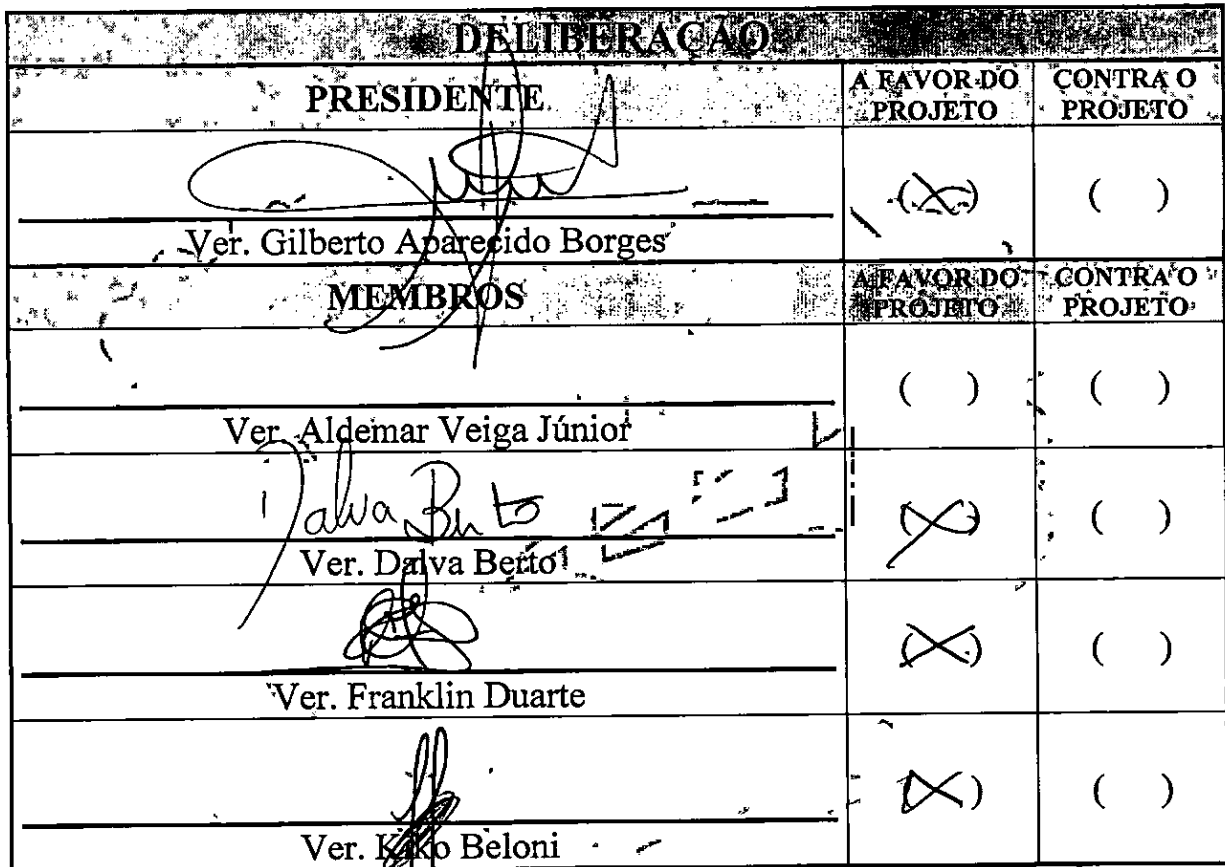 DELIBERAÇÃO
PRESIDENTE
A FAVOR DO PROJETO
CONTRA O PROJETO
(X)
( )
Ver. Gilberto Aparecido Borges
MEMBROS
A FAVOR DO PROJETO
CONTRA O PROJETO
( )
( )
Ver. Aldemar Veiga Júnior
Dalva Berto
(X)
( )
Ver. Dalva Berto
(X)
( )
Ver. Franklin Duarte
(X)
( )
Ver. Kiko Beloni